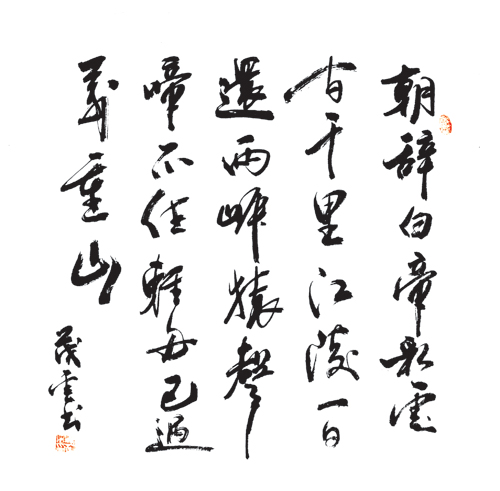 朝辭白帝彩雲
間千里江陵一日
還兩岸猿聲
啼不住輕舟已過
萬重山
茂雲书